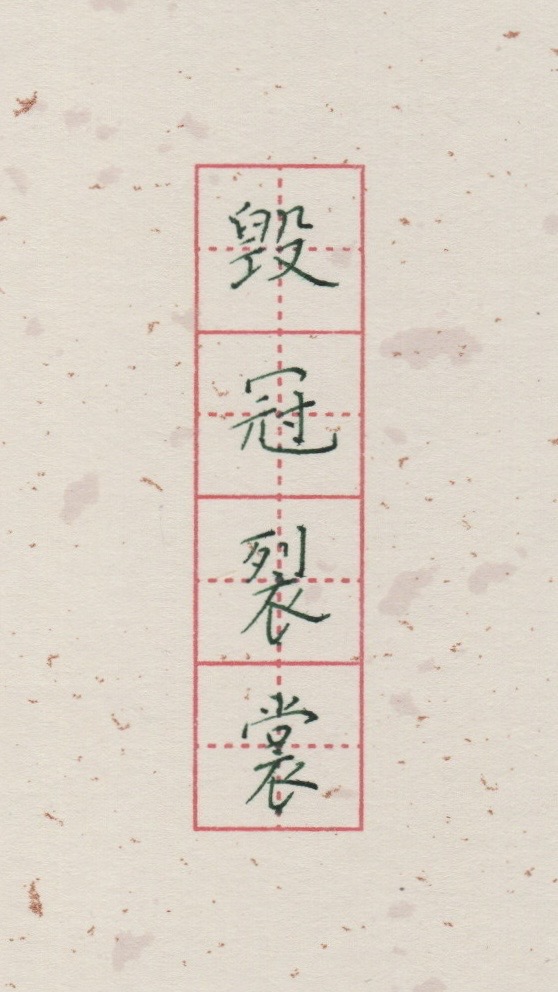 毁冠裂裳